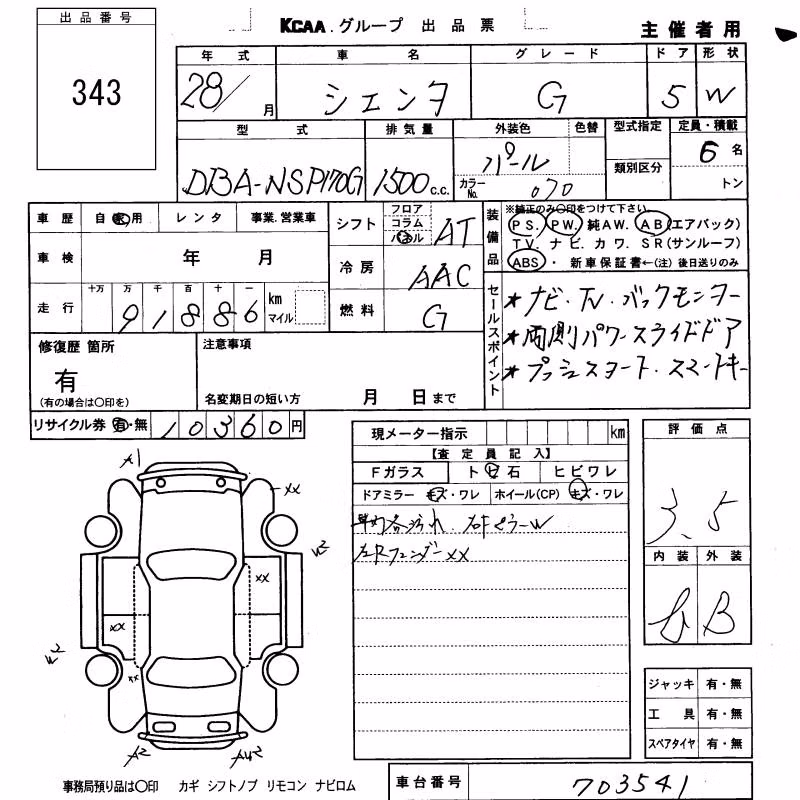 出品番号
343
KCAA.グループ 出品票
主催者用
年式 車名 グレード ドア 形状
28/ 月 シエンタ G 5 W
型式 排気量 外装色 色替 型式指定 定員・積載
DBA-NSP170G 1500 c.c. パール 類別区分 6 名
カラーNo. 070 トン
車歴 自家用 レンタ 事業.営業車
シフト フロア コラム パネル AT
車検 年 月
冷房 AAC
走行 十万 万 千 百 十 一
91886 km マイル
燃料 G
装備品 ※純正のみ○印をつけて下さい
PS. PW. 純AW. AB(エアバック)
TV. ナビ. カワ. SR(サンルーフ)
ABS・ 新車保証書←(注)後日送りのみ
セールスポイント
★ナビ・TV・バックモニター
★両側パワースライドドア
★プッシュスタート.スマートキー
修復歴 箇所
有
(有の場合は○印を)
注意事項
名変期日の短い方 月 日まで
リサイクル券 有・無 10360 円
現メーター指示 km
【査定員記入】
Fガラス トビ石 ヒビワレ
ドアミラー キズ・ワレ ホイール(CP) キズ・ワレ
W
左Rフェンダーxx
評価点
3.5
内装 外装
B
ジャッキ 有・無
工具 有・無
スペアタイヤ 有・無
A1
xx
W2
xx
xx
W2
xx
A2
AW2
事務局預り品は○印 カギ シフトノブ リモコン ナビロム
車台番号 703541